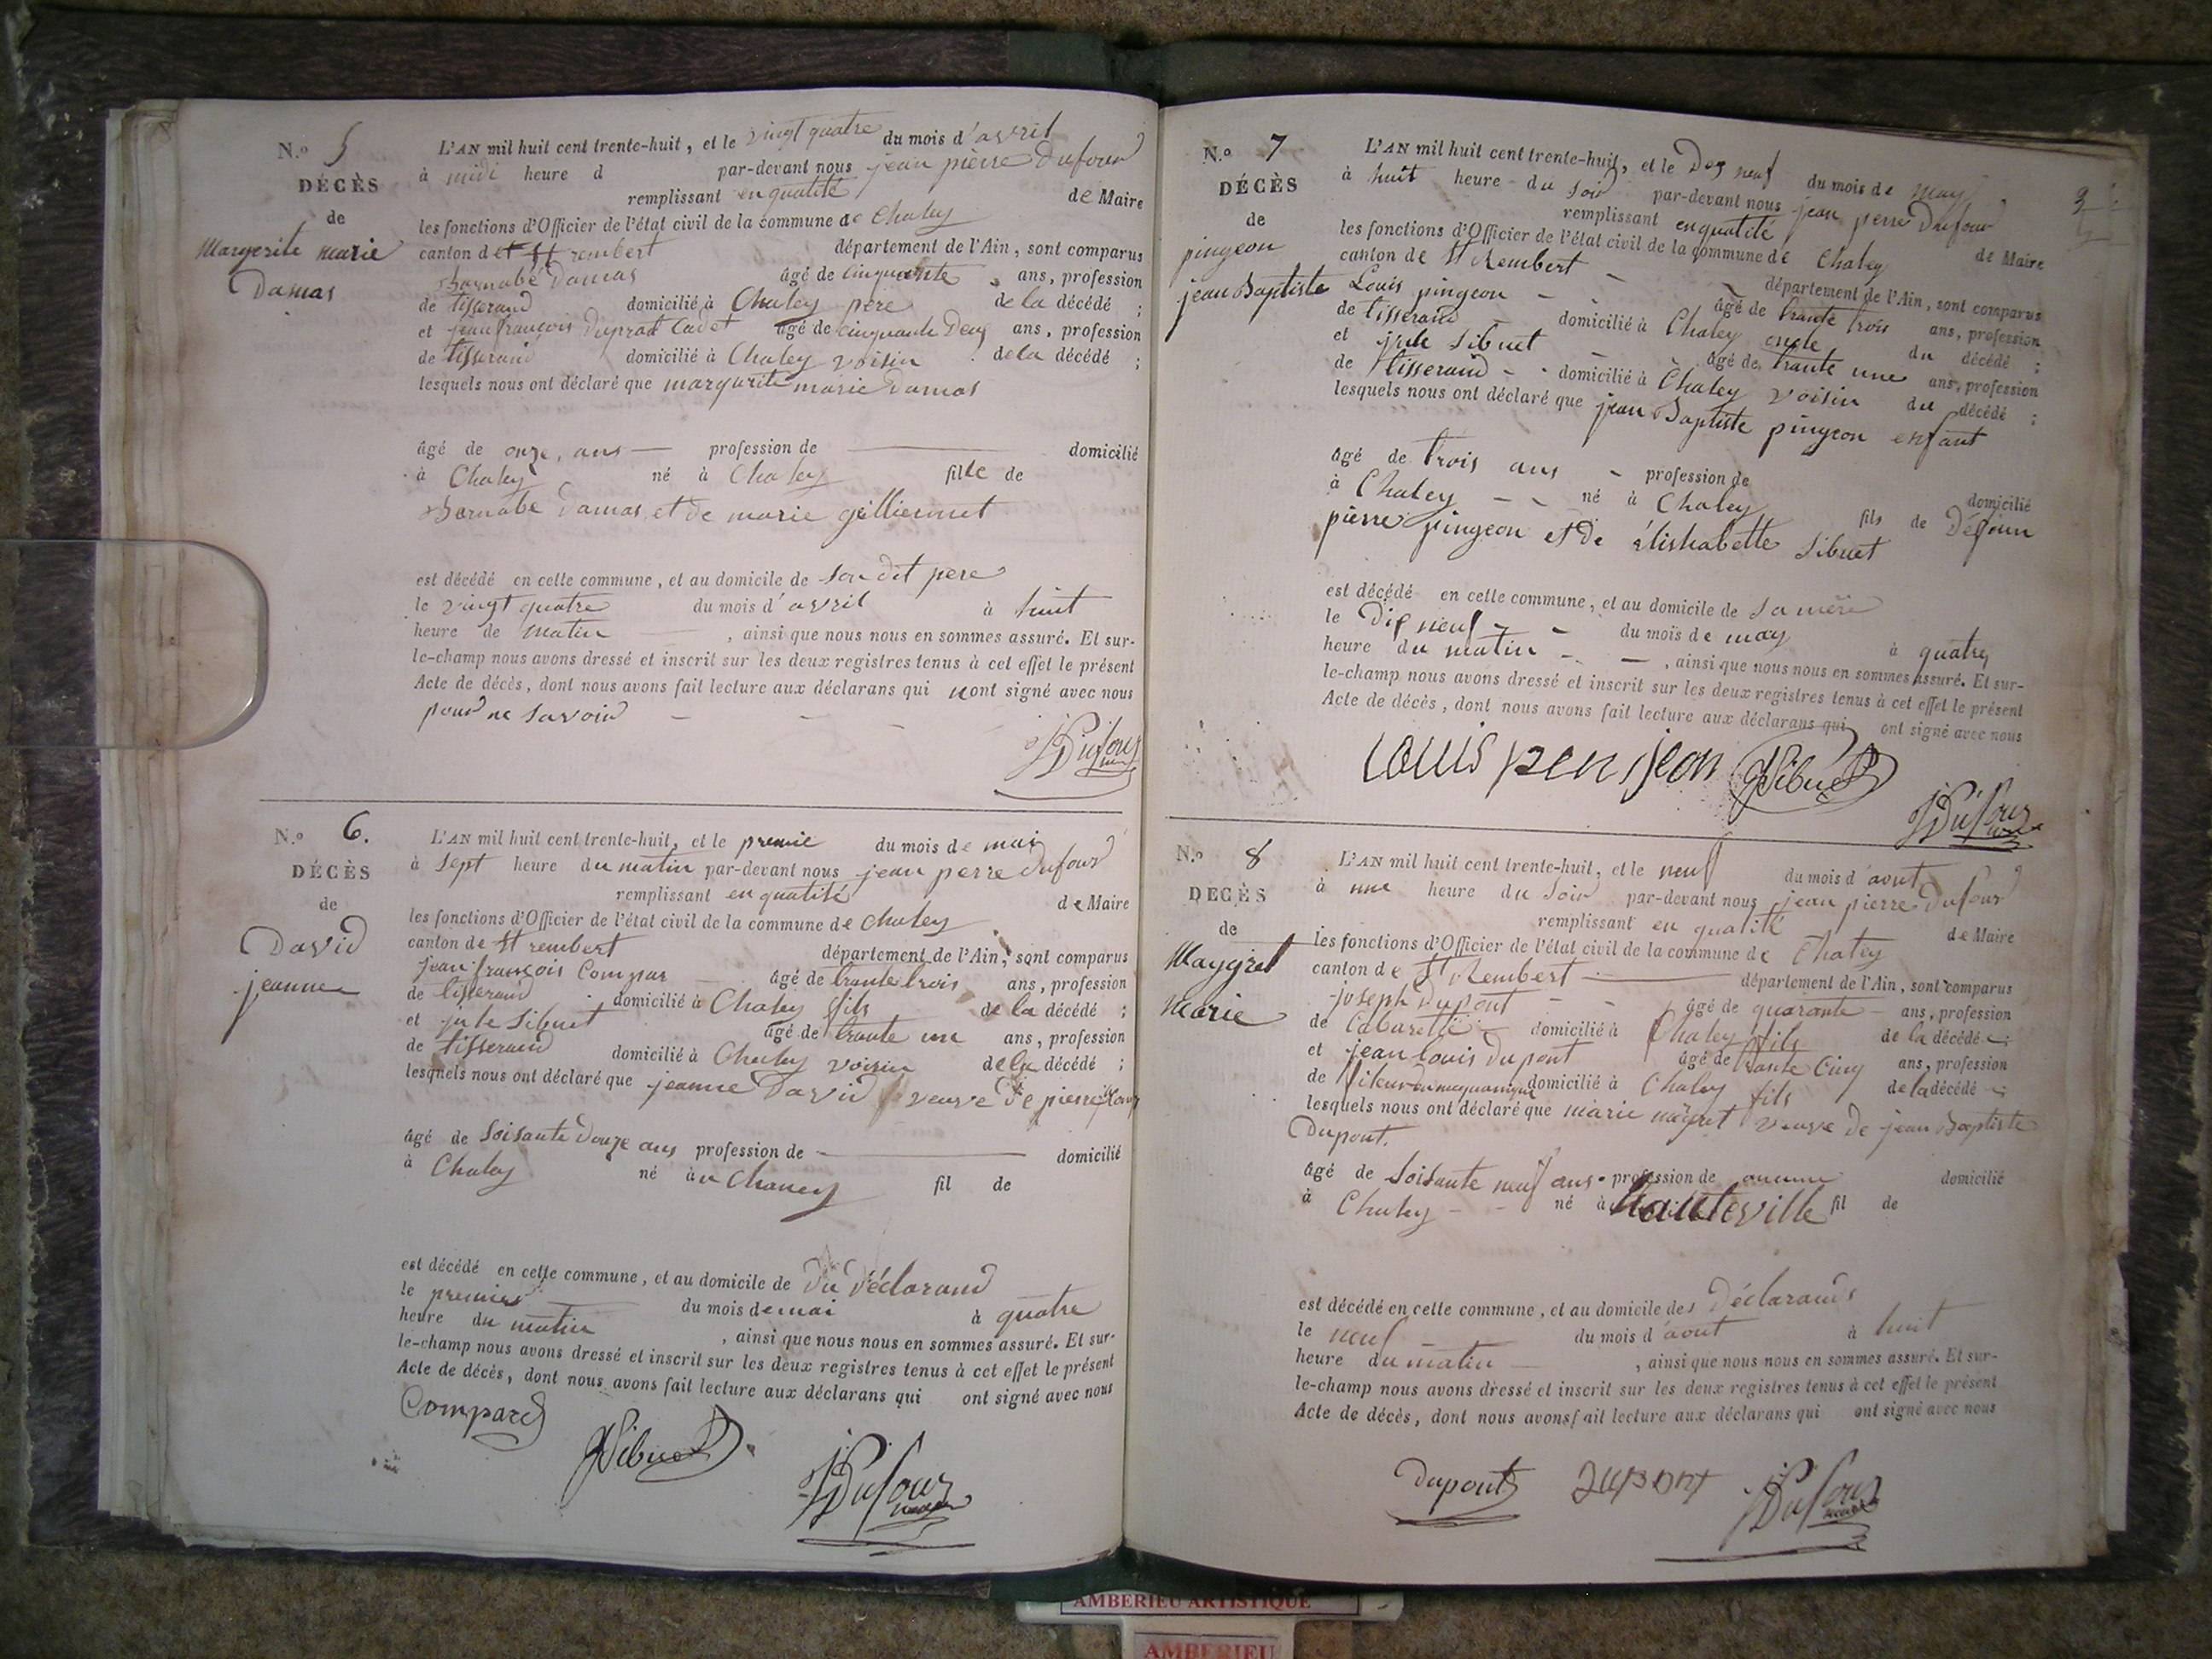 N.o 5
DÉCÈS
de
Margerite marie
Damas
L'AN mil huit cent trente-huit, et le vingt quatre du mois d'avril
à midi heure d par-devant nous jean pierre Dufour
remplissant en qualité de Maire
les fonctions d'Officier de l'état civil de la commune de Chaley
canton de St rembert département de l'Ain, sont comparus
Barnabé Damas âgé de cinquante ans, profession
de tisserand domicilié à Chaley père de la décédé ;
et jean françois Duprat Cadet âgé de cinquante Deux ans, profession
de tisserand domicilié à Chaley voisin de la décédé ;
lesquels nous ont déclaré que margurite marie Damas
âgé de onze ans — profession de — domicilié
à Chaley né à Chaley fille de
Barnabé Damas et de marie gilliermet
est décédé en cette commune, et au domicile de Son dit pere
le vingt quatre du mois d'avril à huit
heure de matin — , ainsi que nous nous en sommes assuré. Et sur-
le-champ nous avons dressé et inscrit sur les deux registres tenus à cet effet le présent
Acte de décès, dont nous avons fait lecture aux déclarans qui nont signé avec nous
pour ne savoir - - -
JPDufour
N.o 6.
DÉCÈS
de
David
jeanne
L'AN mil huit cent trente-huit, et le premie du mois de mai
à sept heure du matin par-devant nous jean perre Dufour
remplissant en qualité de Maire
les fonctions d'Officier de l'état civil de la commune de Chaley
canton de St rembert département de l'Ain, sont comparus
jean françois Compar âgé de trante trois ans, profession
de tisserand domicilié à Chaley fils de la décédé ;
et jule Sibuet âgé de trante une ans, profession
de tisserand domicilié à Chaley voisin de la décédé ;
lesquels nous ont déclaré que jeanne David veuve De pierre
âgé de Soisante Douze ans profession de — domicilié
à Chaley né à u Chaney fil de
est décédé en cette commune, et au domicile de Du Déclarand
le premier du mois de mai à quatre
heure du matin , ainsi que nous nous en sommes assuré. Et sur-
le-champ nous avons dressé et inscrit sur les deux registres tenus à cet effet le présent
Acte de décès, dont nous avons fait lecture aux déclarans qui ont signé avec nous
Compare
JSibuet
JPDufour
maire
N.o 7
DÉCÈS
de
pingeon
jean Baptiste
L'AN mil huit cent trente-huit, et le Dez neuf du mois de may
à huit heure du soir par-devant nous jean perre Dufour
remplissant en qualité de Maire
les fonctions d'Officier de l'état civil de la commune de Chaley
canton de St Rembert - département de l'Ain, sont comparus
Louis pingeon - - âgé de trante trois ans, profession
de tisserand - domicilié à Chaley oncle du décédé ;
et jule Sibuet - - âgé de trante une ans, profession
de tisserand - - domicilié à Chaley voisin du décédé ;
lesquels nous ont déclaré que jean Baptiste pingeon enfant
âgé de trois ans - profession de domicilié
à Chaley - - né à Chaley fils de Défeun
pierre pingeon et de élishabette Sibuet
est décédé en cette commune, et au domicile de Sa mère
le Dix neuf - - du mois de may à quatre
heure du matin - - , ainsi que nous nous en sommes assuré. Et sur-
le-champ nous avons dressé et inscrit sur les deux registres tenus à cet effet le présent
Acte de décès, dont nous avons fait lecture aux déclarans qui ont signé avec nous
Louis penjeon JSibuet
JPDufour
N.o 8
DECÈS
de
Maygret
Marie
L'AN mil huit cent trente-huit, et le neuf du mois d'aout
à une heure du Soir par-devant nous jean pierre Dufour
remplissant en qualité de Maire
les fonctions d'Officier de l'état civil de la commune de Chaley
canton de St Rembert — département de l'Ain, sont comparus
joseph Dupont - - âgé de quarante - ans, profession
de Cabarettié - domicilié à Chaley fils de la décédé ;
et jean louis Dupont âgé de trante Cinq ans, profession
de fileur domicilié à Chaley fils de la décédé ;
lesquels nous ont déclaré que marie maigret veuve De jean Baptiste
Dupont.
âgé de Soisante neuf ans profession de aucune domicilié
à Chaley - - né à hauteville fil de
est décédé en cette commune, et au domicile des Déclarands
le neuf du mois d'aout à huit
heure du matin , ainsi que nous nous en sommes assuré. Et sur-
le-champ nous avons dressé et inscrit sur les deux registres tenus à cet effet le présent
Acte de décès, dont nous avons fait lecture aux déclarans qui ont signé avec nous
Dupont Dupont JPDufour
maire
AMBERIEU ARTISTIQUE
AMBERIEU